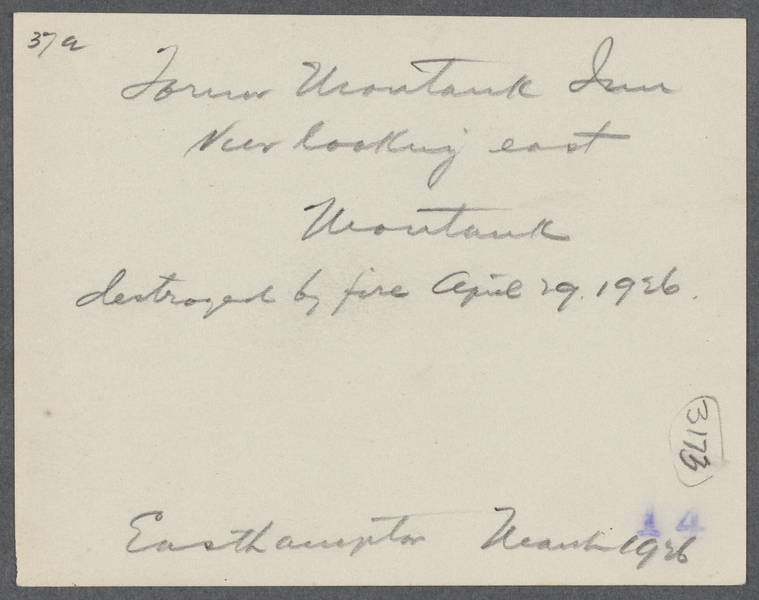 37a
Former Montauk Inn
View looking east
Montauk
destroyed by fire April 29. 1926.
3173
14
Easthampton March 1926